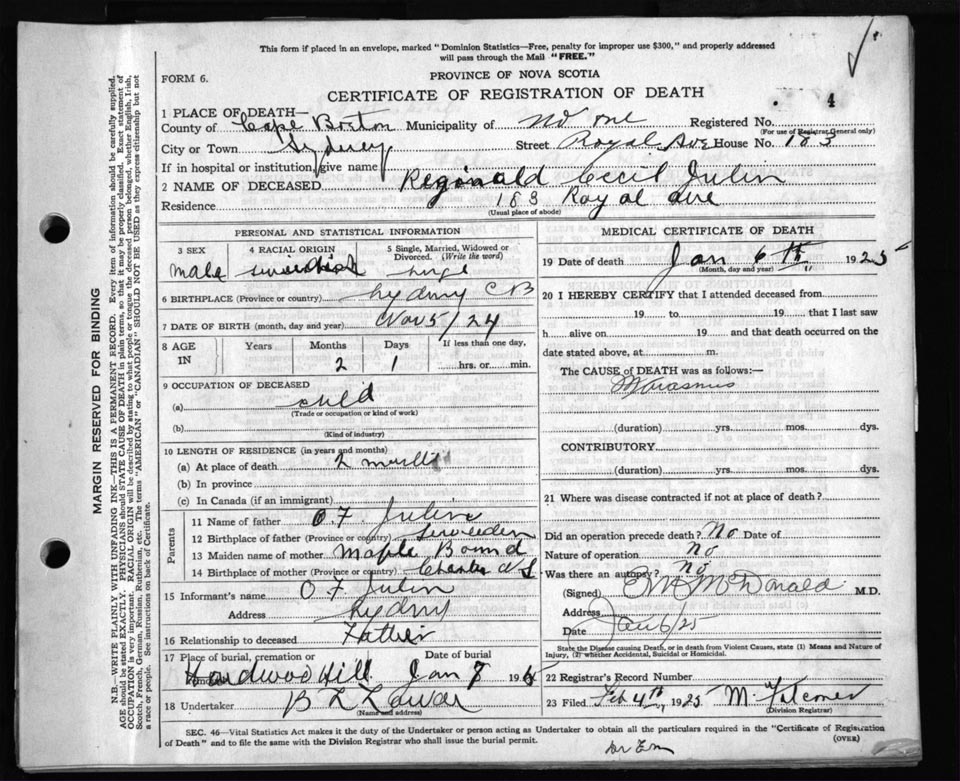 This form if placed in an envelope, marked "Dominion Statistics—Free, penalty for improper use $300," and properly addressed
will pass through the Mail "FREE."
FORM 6.
PROVINCE OF NOVA SCOTIA
CERTIFICATE OF REGISTRATION OF DEATH
4
1 PLACE OF DEATH—
County of Cape Breton Municipality of No one Registered No.
(For use of Registrar General only)
City or Town Sydney Street Royal Ave House No. 183
If in hospital or institution, give name
2 NAME OF DECEASED Reginald Cecil Julin
Residence 183 Royal ave
(Usual place of abode)
PERSONAL AND STATISTICAL INFORMATION
3 SEX 4 RACIAL ORIGIN 5 Single, Married, Widowed or Divorced. (Write the word)
male
6 BIRTHPLACE (Province or country) Sydney C B
7 DATE OF BIRTH (month, day and year) Nov 5/24
8 AGE IN Years Months Days If less than one day,
2 1 hrs. or min.
9 OCCUPATION OF DECEASED
(a) child
(Trade or occupation or kind of work)
(b)
(Kind of industry)
10 LENGTH OF RESIDENCE (in years and months)
(a) At place of death 2 months
(b) In province
(c) In Canada (if an immigrant)
Parents
11 Name of father O. F. Julin
12 Birthplace of father (Province or country) Sweden
13 Maiden name of mother Maple Bound
14 Birthplace of mother (Province or country) N S
15 Informant's name O F Julin
Address Sydney
16 Relationship to deceased Father
17 Place of burial, cremation or Date of burial
Hardwood Hill Jan 8 19
18 Undertaker
(Name and address)
MEDICAL CERTIFICATE OF DEATH
19 Date of death Jan 6th 1925
(Month, day and year)
20 I HEREBY CERTIFY that I attended deceased from
19 to 19 that I last saw
h alive on 19 and that death occurred on the
date stated above, at m.
The CAUSE of DEATH was as follows:—
Marasmus
(duration) yrs. mos. dys.
CONTRIBUTORY.
(duration) yrs. mos. dys.
21 Where was disease contracted if not at place of death?
Did an operation precede death? No Date of
Nature of operation No
Was there an autopsy? No
(Signed) McDonald M.D.
Address
Date Jan 6/25
State the Disease causing Death, or in death from Violent Causes, state (1) Means and Nature of
Injury, (2) whether Accidental, Suicidal or Homicidal.
22 Registrar's Record Number
23 Filed Feb 4th 1925
(Division Registrar)
SEC. 46—Vital Statistics Act makes it the duty of the Undertaker or person acting as Undertaker to obtain all the particulars required in the "Certificate of Registration
of Death" and to file the same with the Division Registrar who shall issue the burial permit.
(OVER)
MARGIN RESERVED FOR BINDING
N.B.—WRITE PLAINLY WITH UNFADING INK—THIS IS A PERMANENT RECORD. Every item of information should be carefully supplied.
AGE should be stated EXACTLY. PHYSICIANS should STATE CAUSE OF DEATH in plain terms, so that it may be properly classified. Exact statement of
OCCUPATION is very important. RACIAL ORIGIN will be described by stating to what people or tongue the deceased person belonged, whether English, Irish,
Scotch, French, German, Russian, Ruthenian, etc. The terms "AMERICAN" or "CANADIAN" SHOULD NOT BE USED as they express citizenship but not
a race or people. See instructions on back of Certificate.